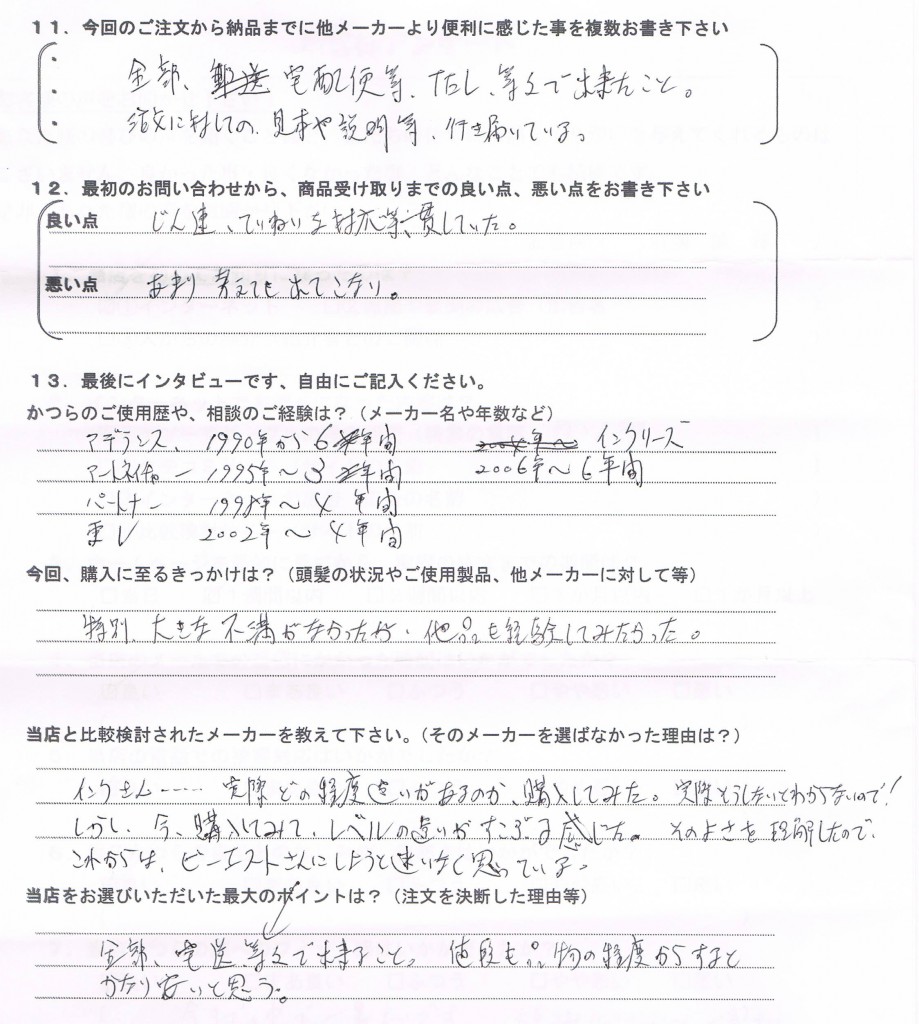 １１．今回のご注文から納品までに他メーカーより便利に感じた事を複数お書き下さい
・全部、郵送 宅配便等、だし、等々で出来たこと。
・
・注文に対しての、見本や説明等、行き届いている。
１２．最初のお問い合わせから、商品受け取りまでの良い点、悪い点をお書き下さい
良い点 じん速、ていねいな対応等、一貫していた。
悪い点 あまり考えても出てこない。
１３．最後にインタビューです、自由にご記入ください。
かつらのご使用歴や、相談のご経験は？（メーカー名や年数など）
アデランス、1990年から6年間 2004年～ インクリーズ
アートネイチャー 1995年～3年間 2006年～6年間
パートナー 1998年～4年間
東レ 2002年～4年間
今回、購入に至るきっかけは？（頭髪の状況やご使用製品、他メーカーに対して等）
特別、大きな不満がなかったが、他品も経験してみたかった。
当店と比較検討されたメーカーを教えて下さい。（そのメーカーを選ばなかった理由は？）
インクさん…… 実際どの程度違いがあるのか、購入してみた。実際そうしないとわからないので！
しかし、今、購入してみて、レベルの違いがすこぶる感じた。そのよさを理解したので、
これからは、ビーエストさんにしようと迷いなく思っている。
当店をお選びいただいた最大のポイントは？（注文を決断した理由等）
全部、宅送等々で出来ること。値段も品物の程度からすると
かなり安いと思う。